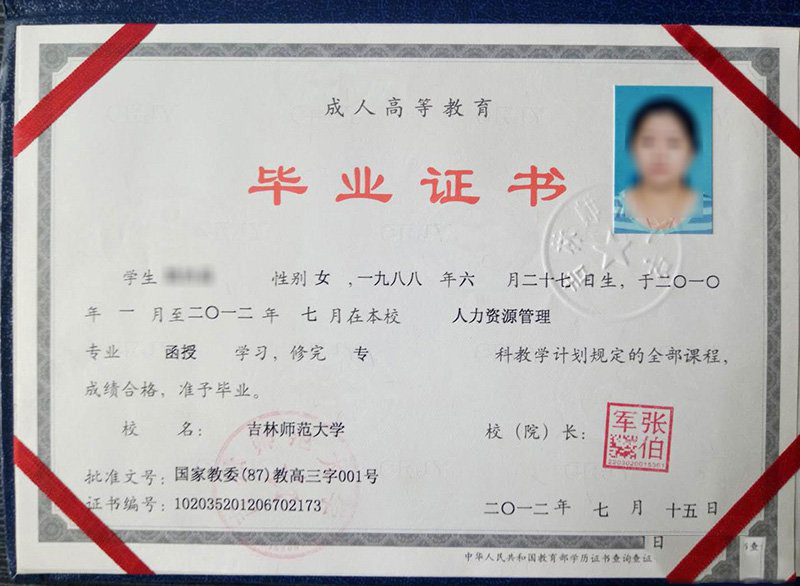 成人高等教育
毕业证书
学生 性别 女 ,一九八八 年 六 月 二十七 日生, 于二〇一〇
年 一 月至二〇一二 年 七 月在本校 人力资源管理
专业 函授 学习, 修完 专 科教学计划规定的全部课程,
成绩合格, 准予毕业。
校 名: 吉林师范大学 校 (院) 长: 张伯军
2203020015561
批准文号: 国家教委(87)教高三字001号
证书编号: 102035201206702173 二〇一二 年 七 月 十五 日
日
中华人民共和国教育部学历证书查询查证